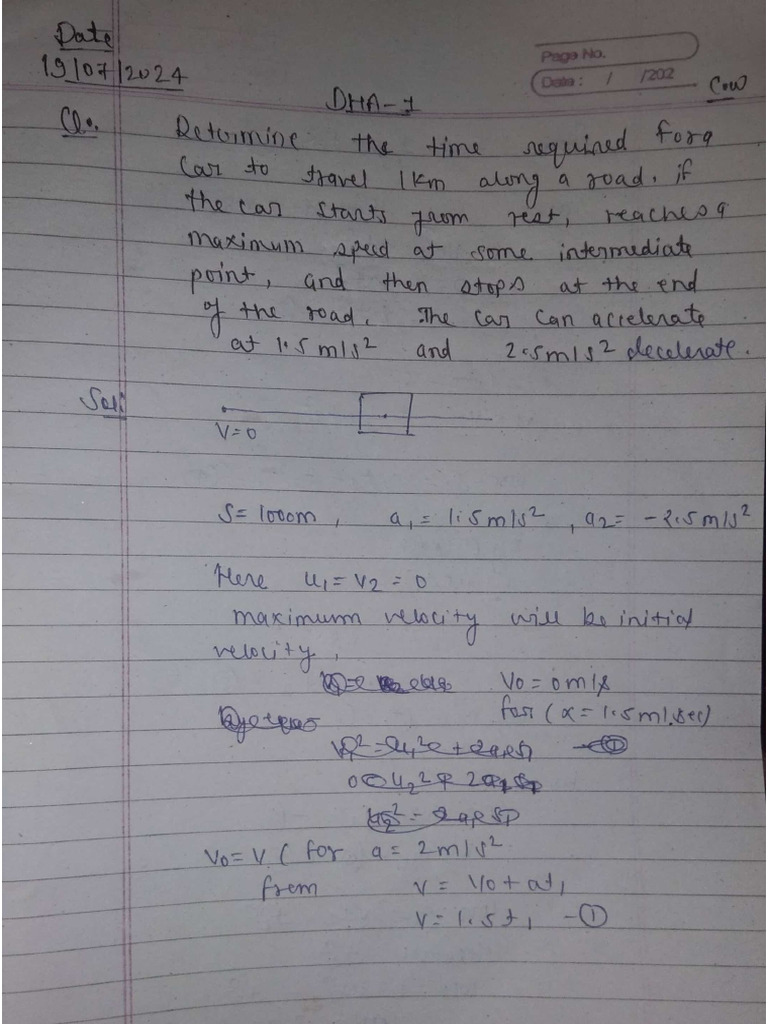 Date
19/07/2024
Page No.
Date: / /202
DHA-1
Cow
Q.
Determine the time required for a
car to travel 1km along a road. if
the car starts from rest, reaches a
maximum speed at some intermediate
point, and then stops at the end
of the road. The car can accelerate
at 1.5 m/s² and 2.5m/s² decelerate.
Sol:
V=0
S=1000m, a₁ = 1.5m/s², a₂= -2.5m/s²
Here u₁=v₂=0
maximum velocity will be initial
velocity,
V0=0m/s
for (α=1.5m/sec)
V0=V (for a=2m/s²
from v = V0+at₁
v=1.5t₁ -①